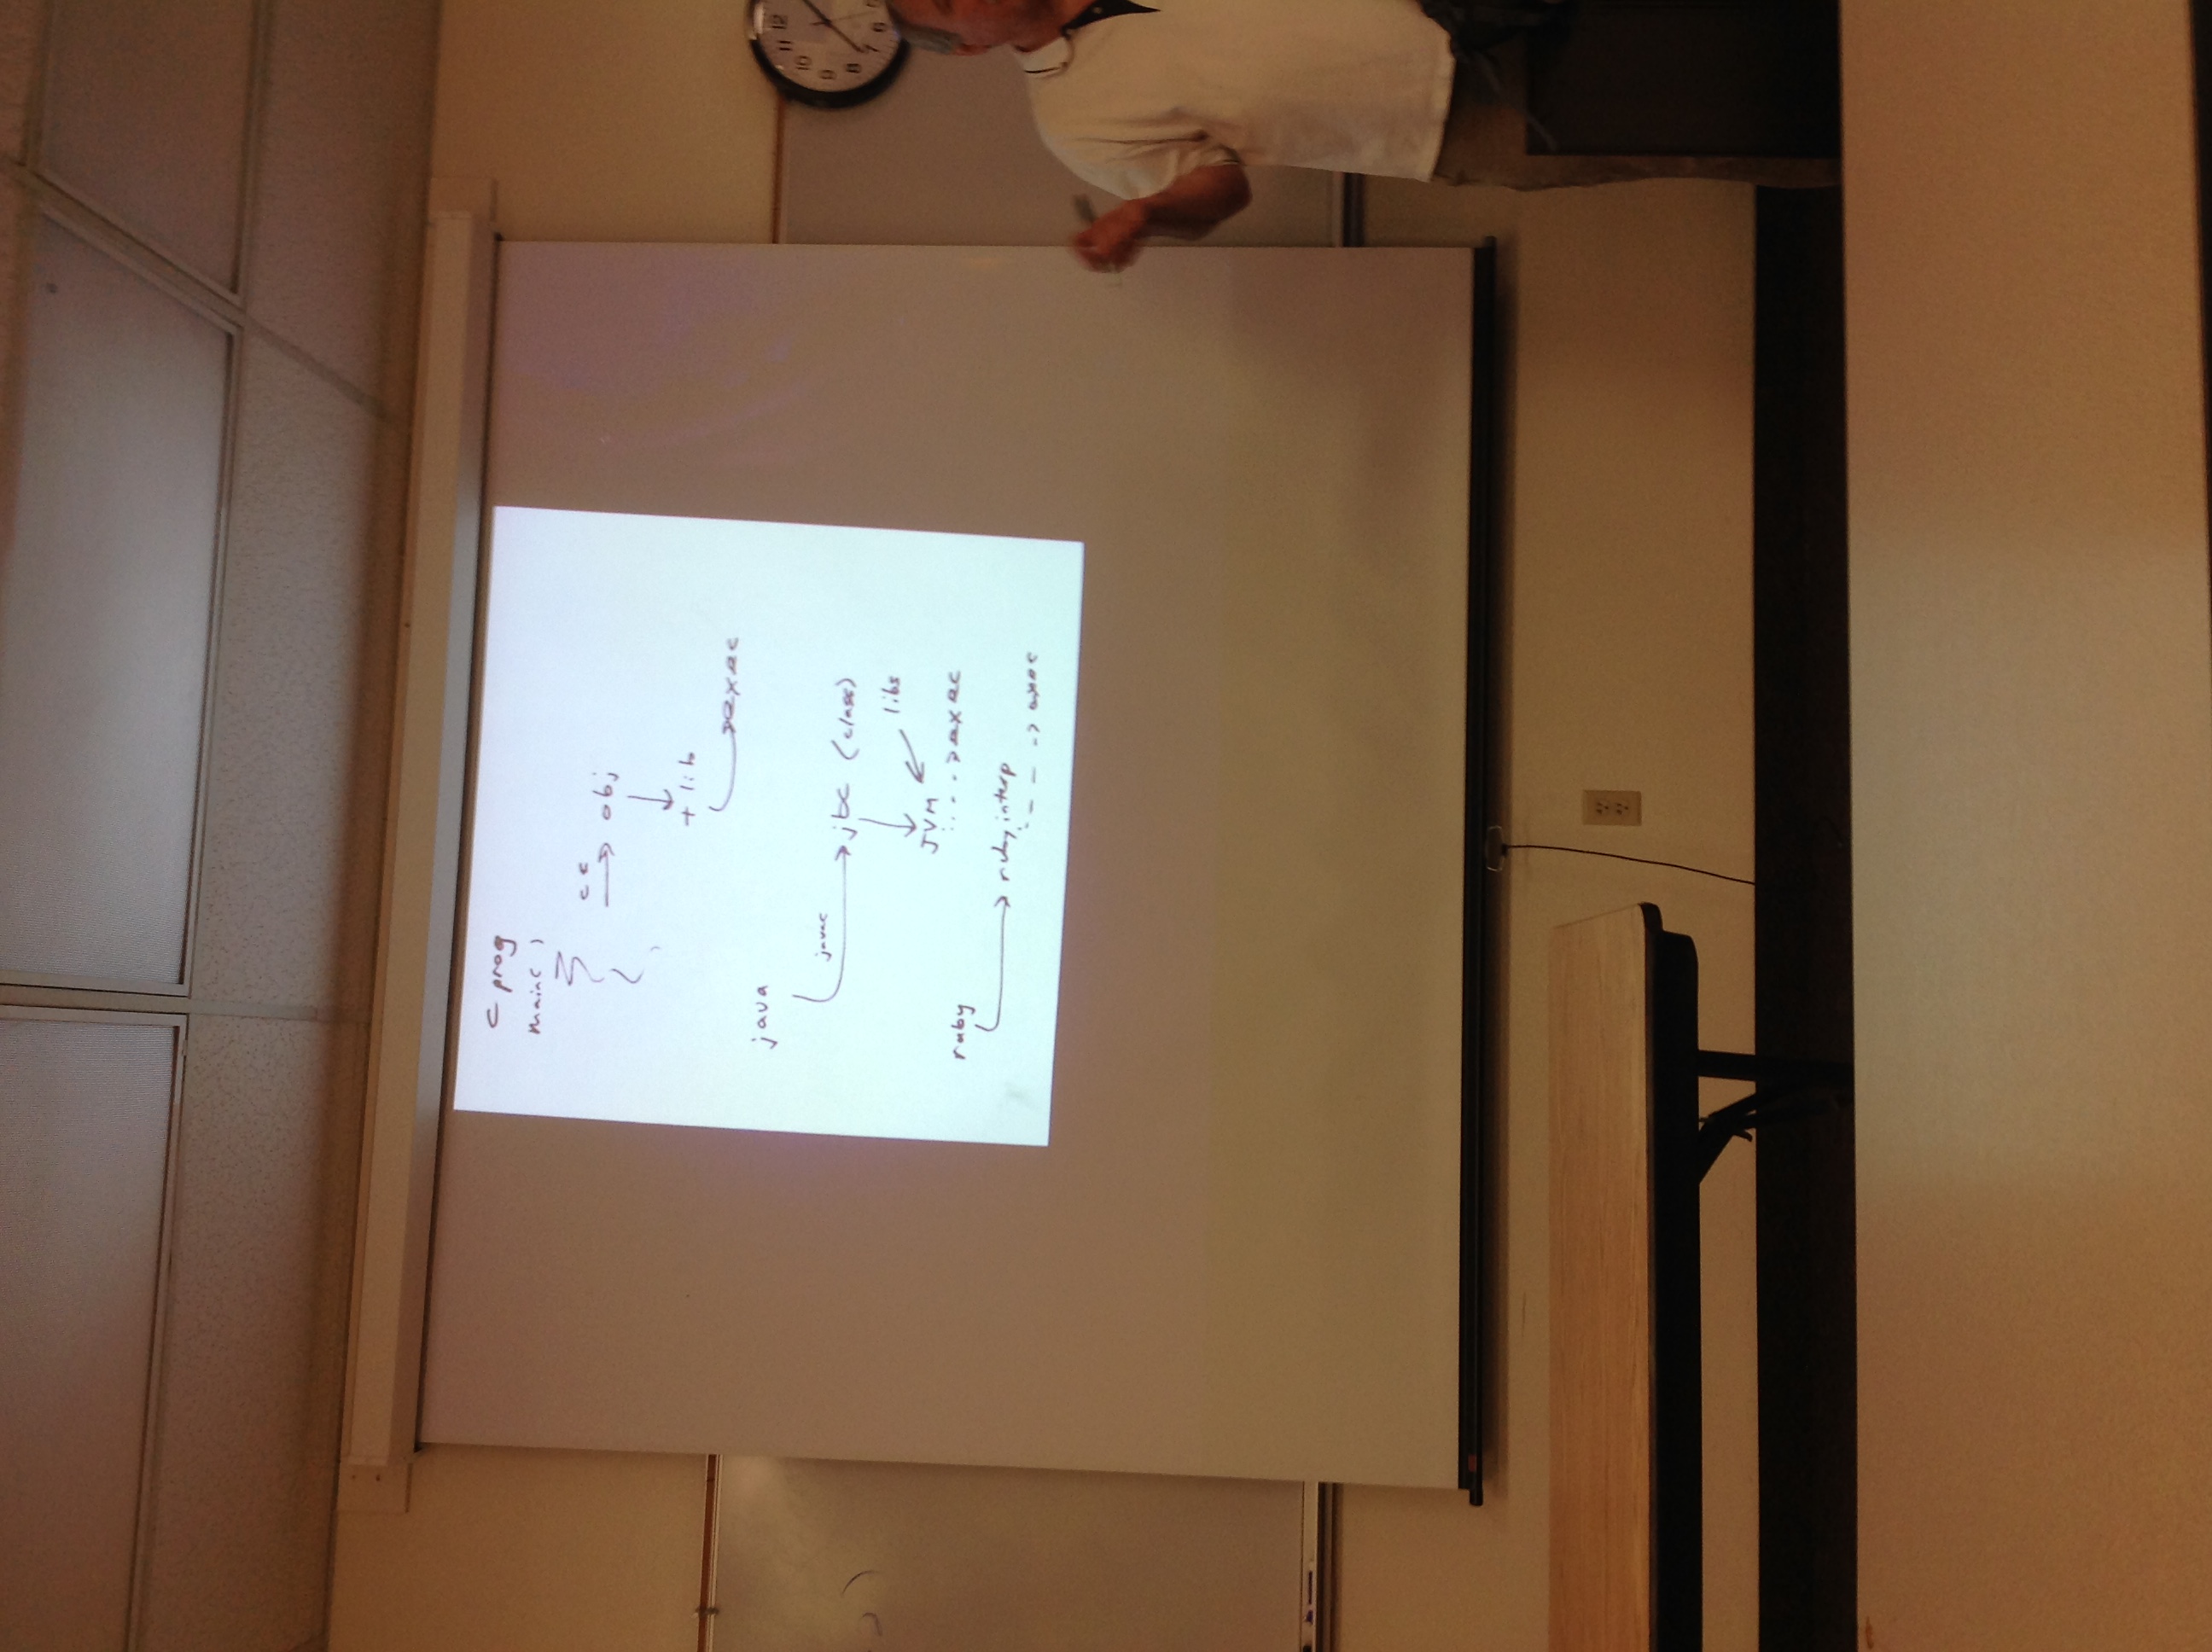 c prog
main( )
cc
obj
+ lib
exec
java
javac
jbc (class)
libs
JVM
exec
ruby
ruby interp
exec
11 12
10
9
8
7 6 5